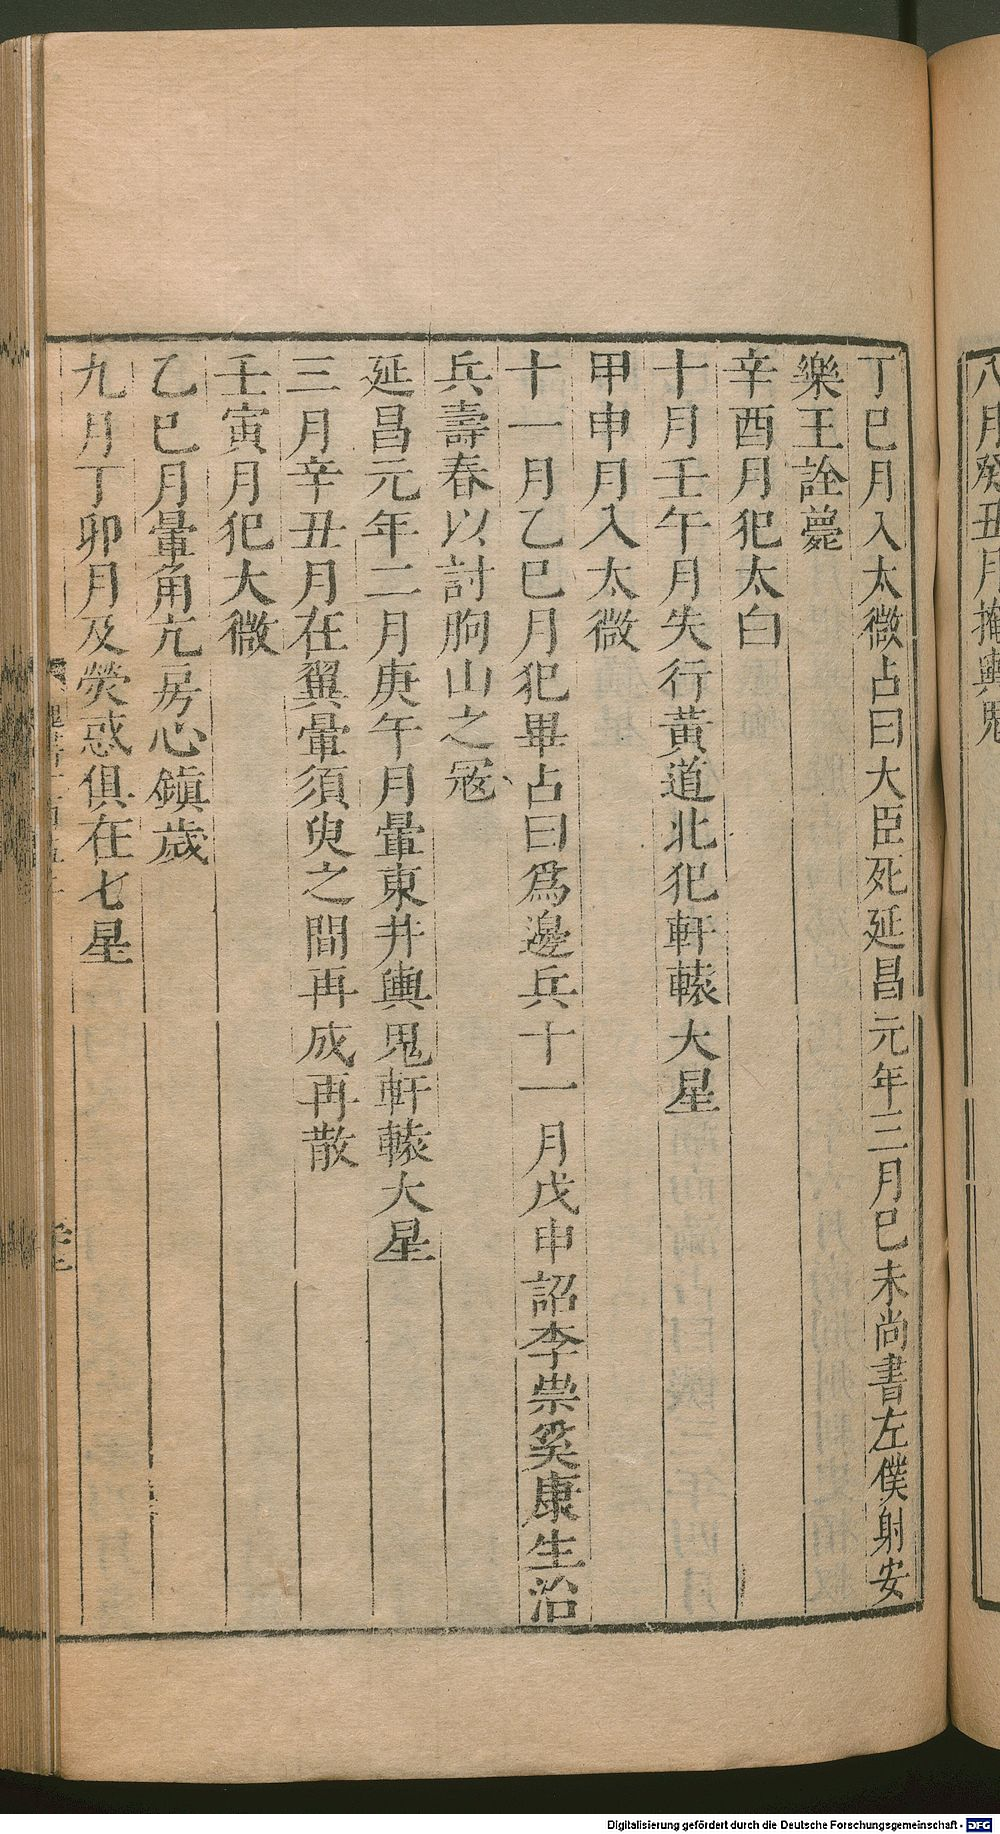 八月癸丑月掩輿鬼
丁巳月入太微占曰大臣死延昌元年三月巳未尚書左僕射安
樂王詮薨
辛酉月犯太白
十月壬午月失行黃道北犯軒轅大星
甲申月入太微
十一月乙巳月犯畢占曰爲邊兵十一月戊申詔李崇奚康生治
兵壽春以討朐山之寇
延昌元年二月庚午月暈東井輿鬼軒轅大星
三月辛丑月在翼暈須臾之間再成再散
壬寅月犯大微
乙巳月暈角亢房心鎮歲
九月丁卯月及熒惑俱在七星
Digitalisierung gefördert durch die Deutsche Forschungsgemeinschaft - DFG